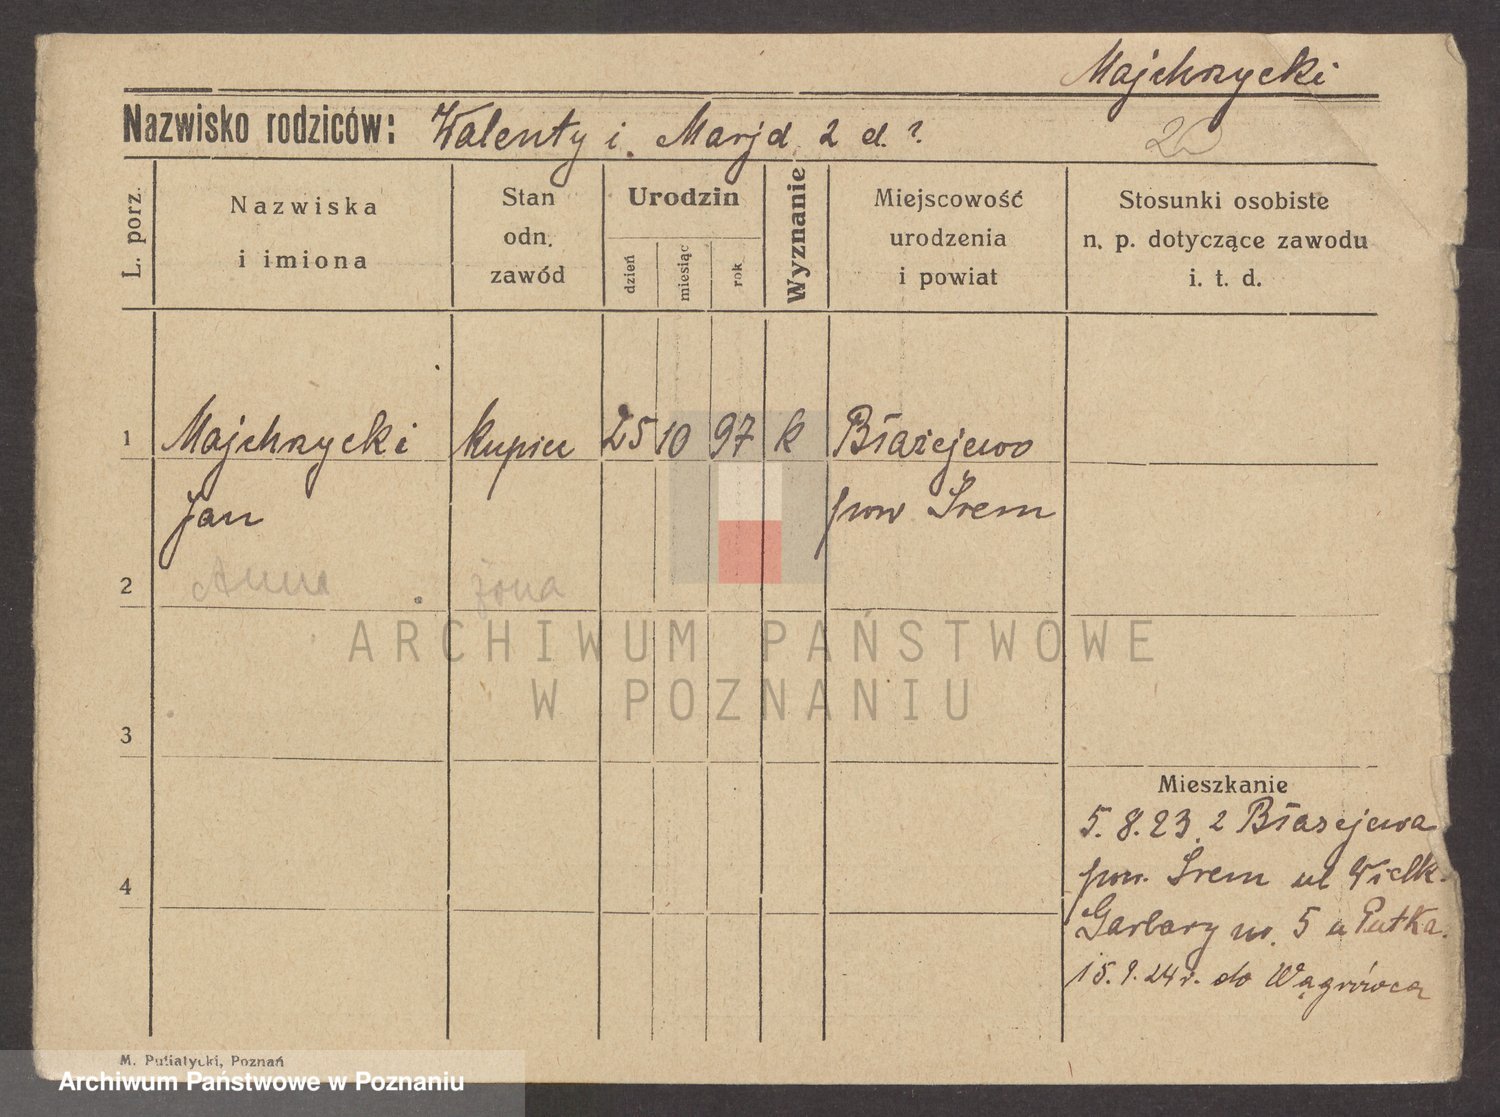 Majchrzycki
Nazwisko rodziców: Walenty i Marjа z d. ?
20
L. porz.
Nazwiska
i imiona
Stan
odn.
zawód
Urodzin
dzień
miesiąc
rok
Wyznanie
Miejscowość
urodzenia
i powiat
Stosunki osobiste
n. p. dotyczące zawodu
i. t. d.
1 Majchrzycki kupiec 25 10 97 k Błażejewo
Jan pow Śrem
2 Anna żona
3
4
Mieszkanie
5. 8. 23. z Błażejewa
pow. Śrem ul Wielk.
Garbary nr. 5 u Putka.
15. 9. 24 r. do Wągrówca
M. Putiatycki, Poznań
ARCHIWUM PAŃSTWOWE
W POZNANIU
Archiwum Państwowe w Poznaniu